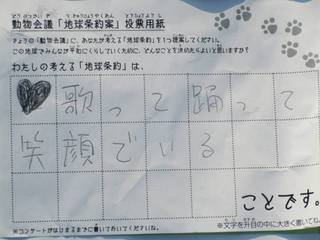 動物会議「地球条約案」投票用紙
きょうの「動物会議」に、あなたが考える「地球条約」を1つ提案してください。
この地球でみんなが平和にくらしていくために、どんなことを決めたらよいと思いますか?
わたしの考える「地球条約」は、
♥歌って踊って
笑顔でいる
ことです。
※文字を升目の中に大きく書いてね
※コンサートがはじまるまでに書いておいてくださいね。